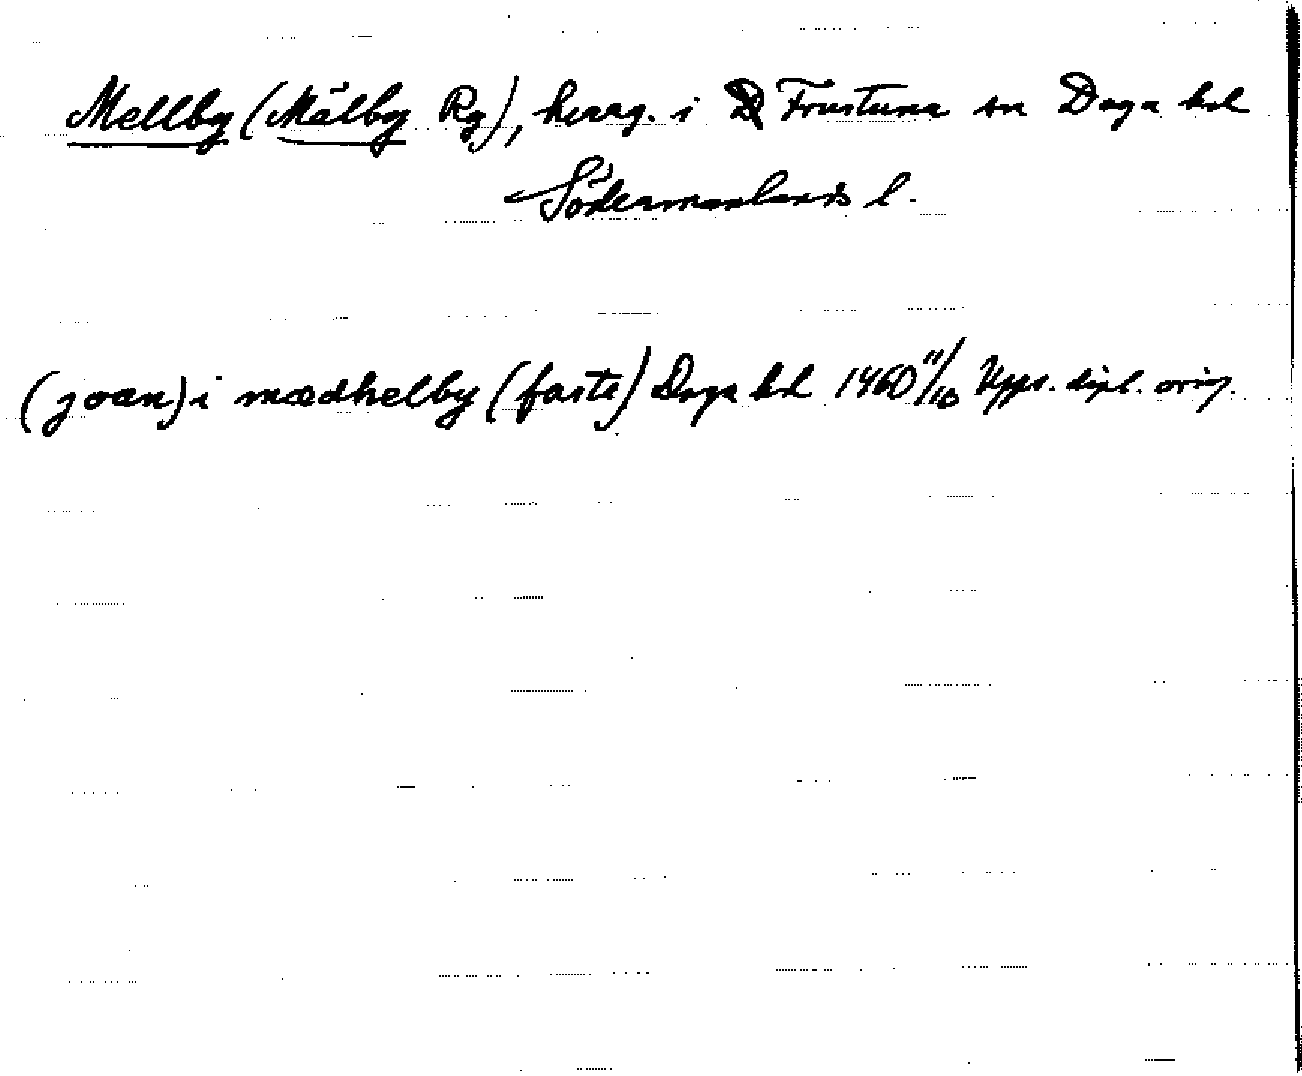 Mellby (Mälby Rg), herrg. i Frustuna sn Daga hd
Södermanlands l.
(joan) i mædhelby (faste) Daga hd 1460 11/10 Upps. dipl. orig.